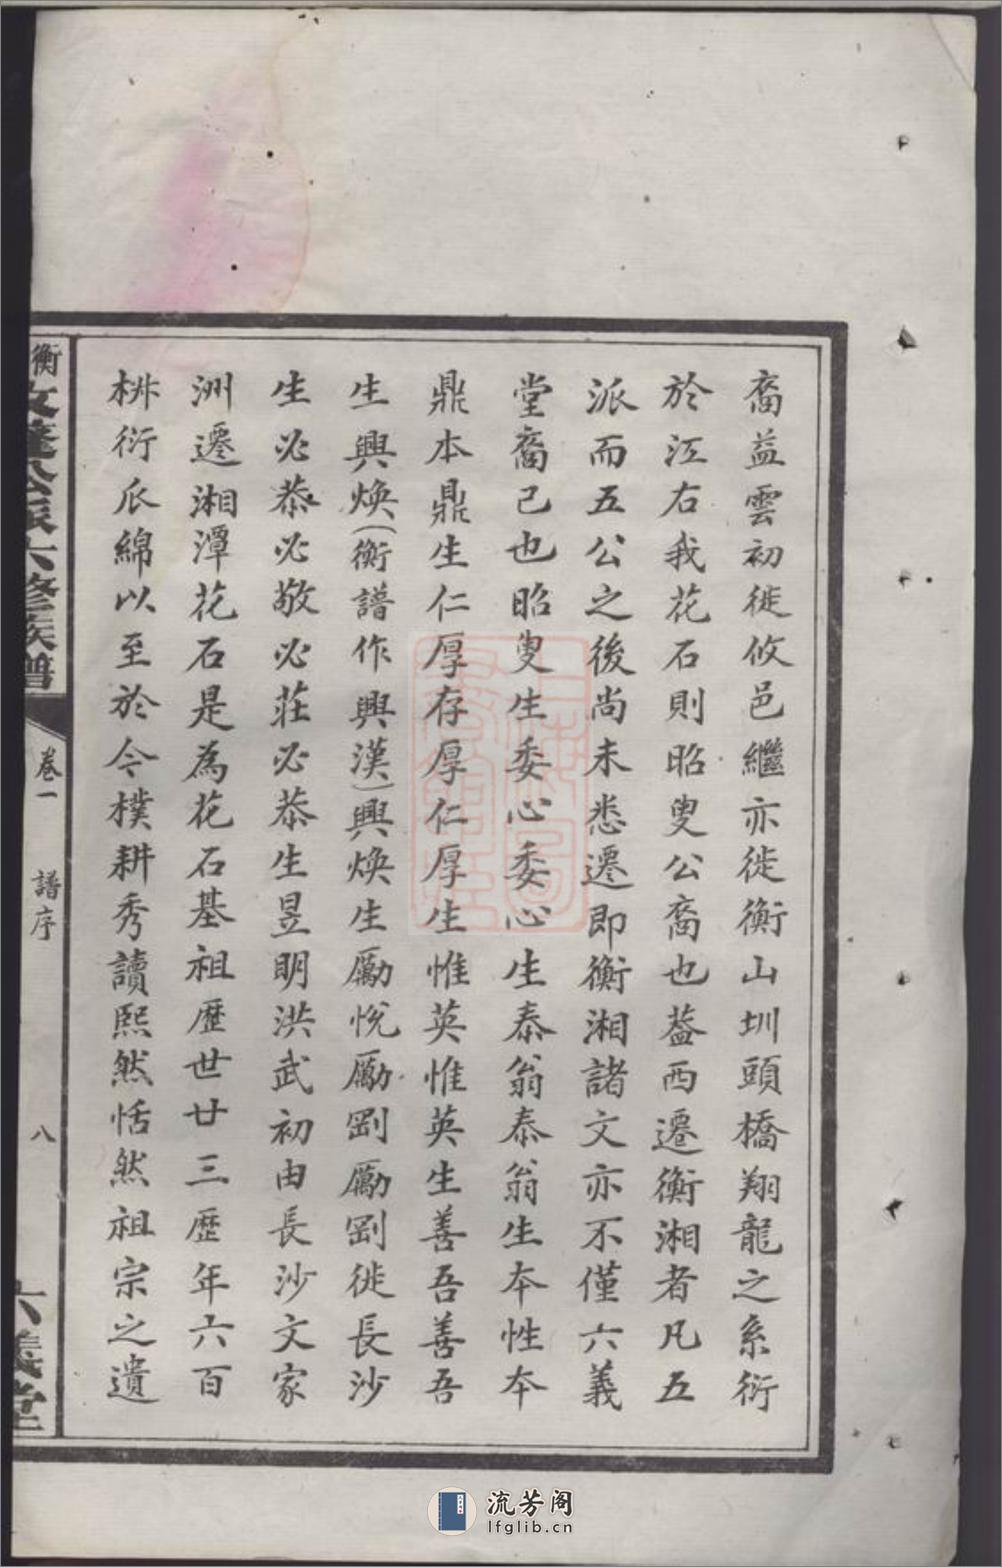 裔益雲初徙攸邑繼亦徙衡山圳頭橋翔龍之系衍
於江右我花石則昭叟公裔也葢西遷衡湘者凡五
派而五公之後尚未悉遷即衡湘諸文亦不僅六義
堂裔己也昭叟生委心委心生泰翁泰翁生本性本
鼎本鼎生仁厚存厚仁厚生惟英惟英生善吾善吾
生興煥(衡譜作興漢)興煥生勵悅勵剛勵剛徙長沙
生必恭必敬必莊必恭生昱明洪武初由長沙文家
洲遷湘潭花石是為花石基祖歷世廿三歷年六百
椕衍瓜綿以至於今樸耕秀讀熙然恬然祖宗之遺
衡 公派六修族譜
卷一 譜序 八
六義堂
流芳阁
lfglib.cn